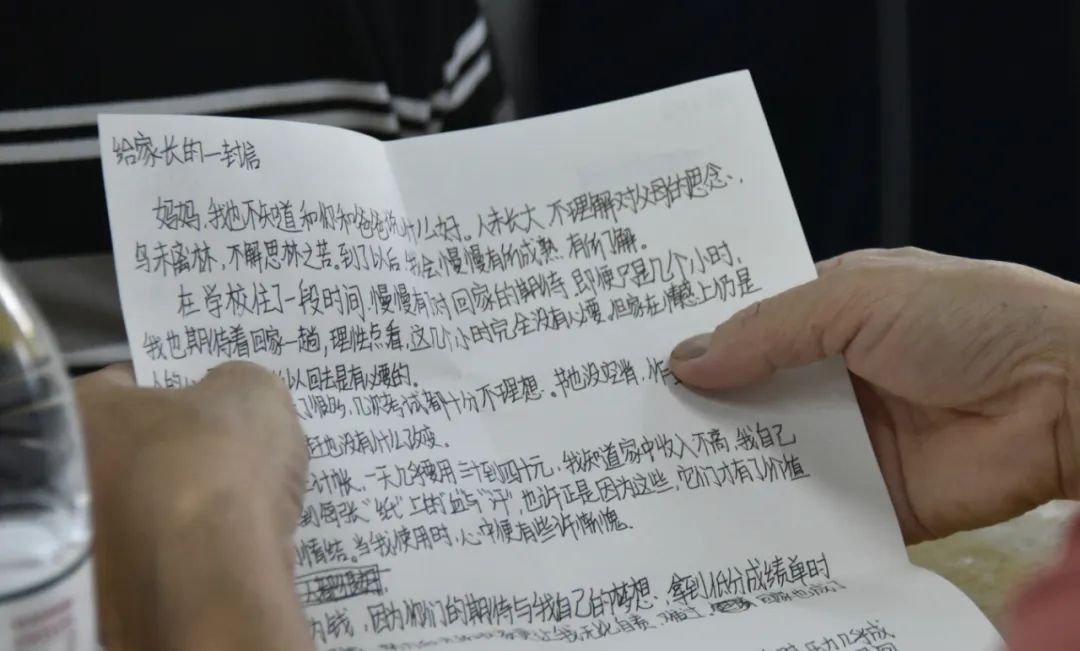 给家长的一封信
妈妈,我也不知道和你和爸爸说什么好。人未长大,不理解对父母的思念,
鸟未离林,不解思林之苦。到了以后我会慢慢有所成熟,有所了解。
在学校住了一段时间,慢慢有对回家的期待,即便只是几个小时,
我也期待着回家一趟,理性点看,这几个小时完全没有必要。但家在情感上仍是
以回去是有必要的。
几次考试都十分不理想。书也没
也没有什么改变。
计帐,一天几乎要用三十到四十元,我知道家中收入不高,我自己
到每张"纸"上的"血与"汗",也许正是因为这些,它们才有了价值
情结。当我使用时,心中便有些许惭愧。
钱,因为你们的期待与我自己的梦想,拿到低分成绩单的
让我无比自责,